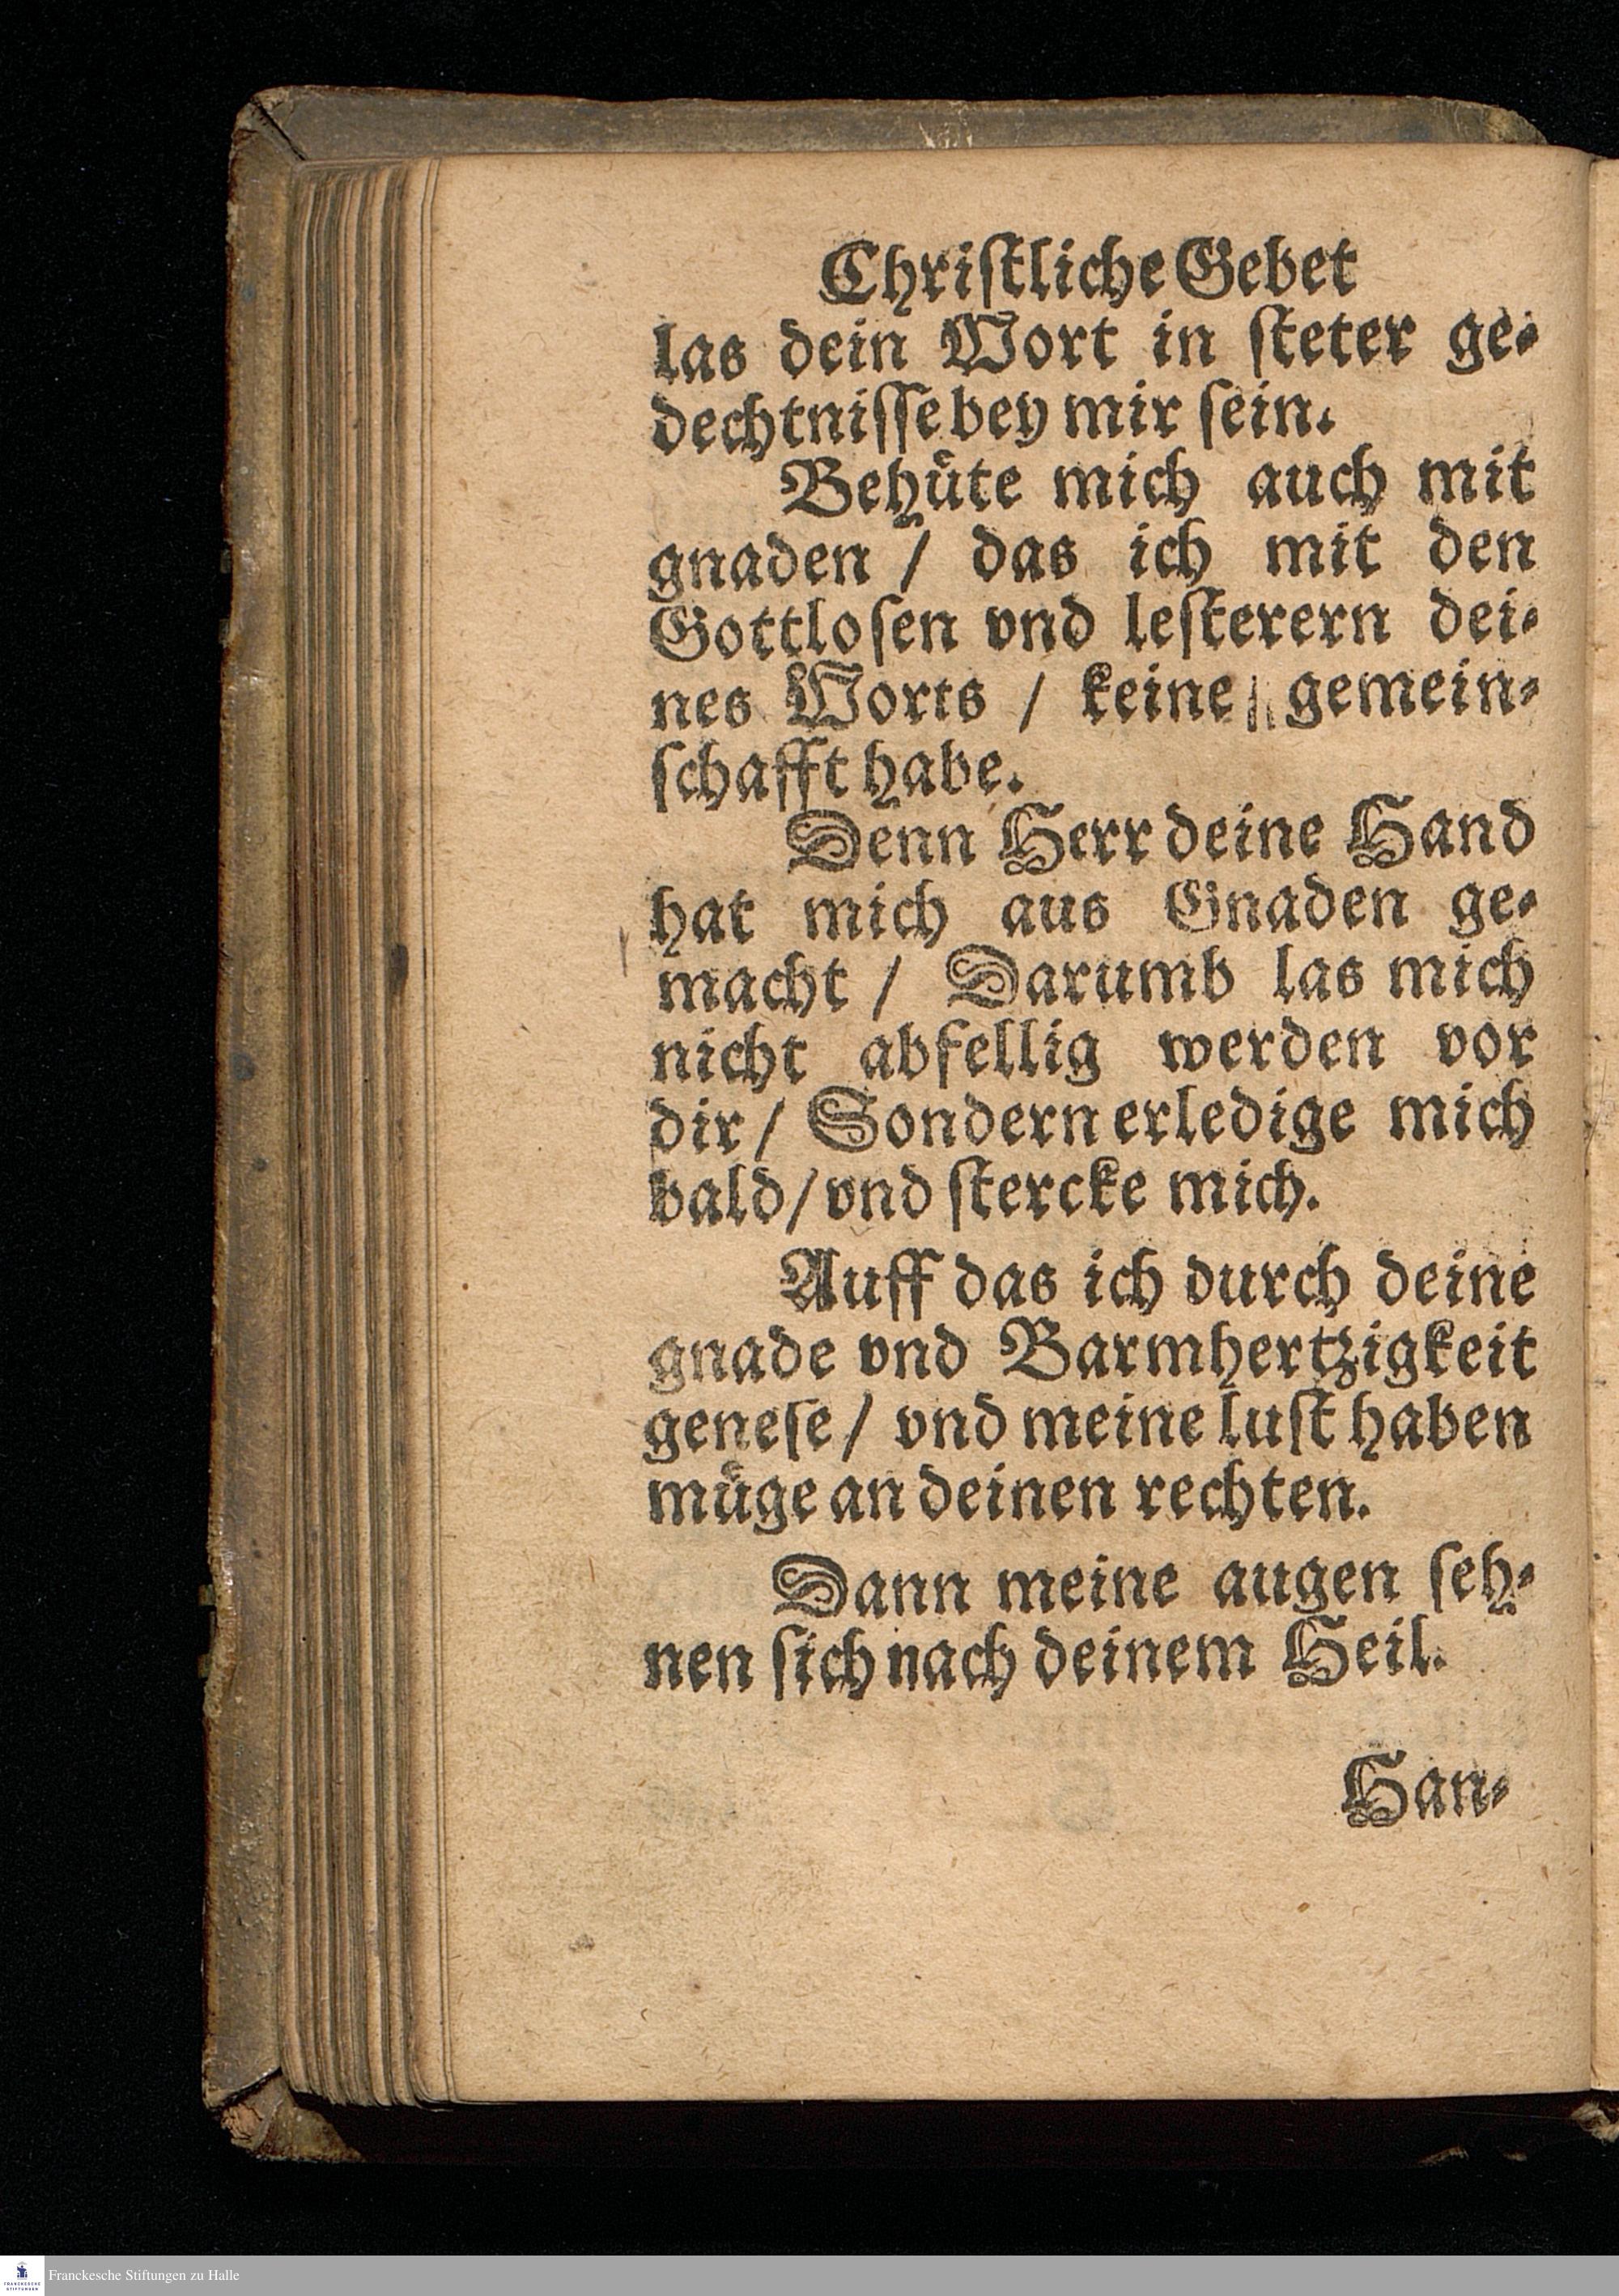 Chriſtliche Gebet
las dein Wort in ſteter ge⸗
dechtniſſe bey mir ſein.
Behuͤte mich auch mit
gnaden / das ich mit den
Gottloſen vnd leſterern dei⸗
nes Worts / keine gemein⸗
ſchafft habe.
Denn Herr deine Hand
hat mich aus Gnaden ge⸗
macht / Darumb las mich
nicht abfellig werden vor
dir / Sondern erledige mich
bald / vnd ſtercke mich.
Auff das ich durch deine
gnade vnd Barmhertzigkeit
geneſe / vnd meine luſt haben
muͤge an deinen rechten.
Dann meine augen ſeh⸗
nen ſich nach deinem Heil.
Han⸗
Franckesche Stiftungen zu Halle
FRANCKESCHE
STIFTUNGEN